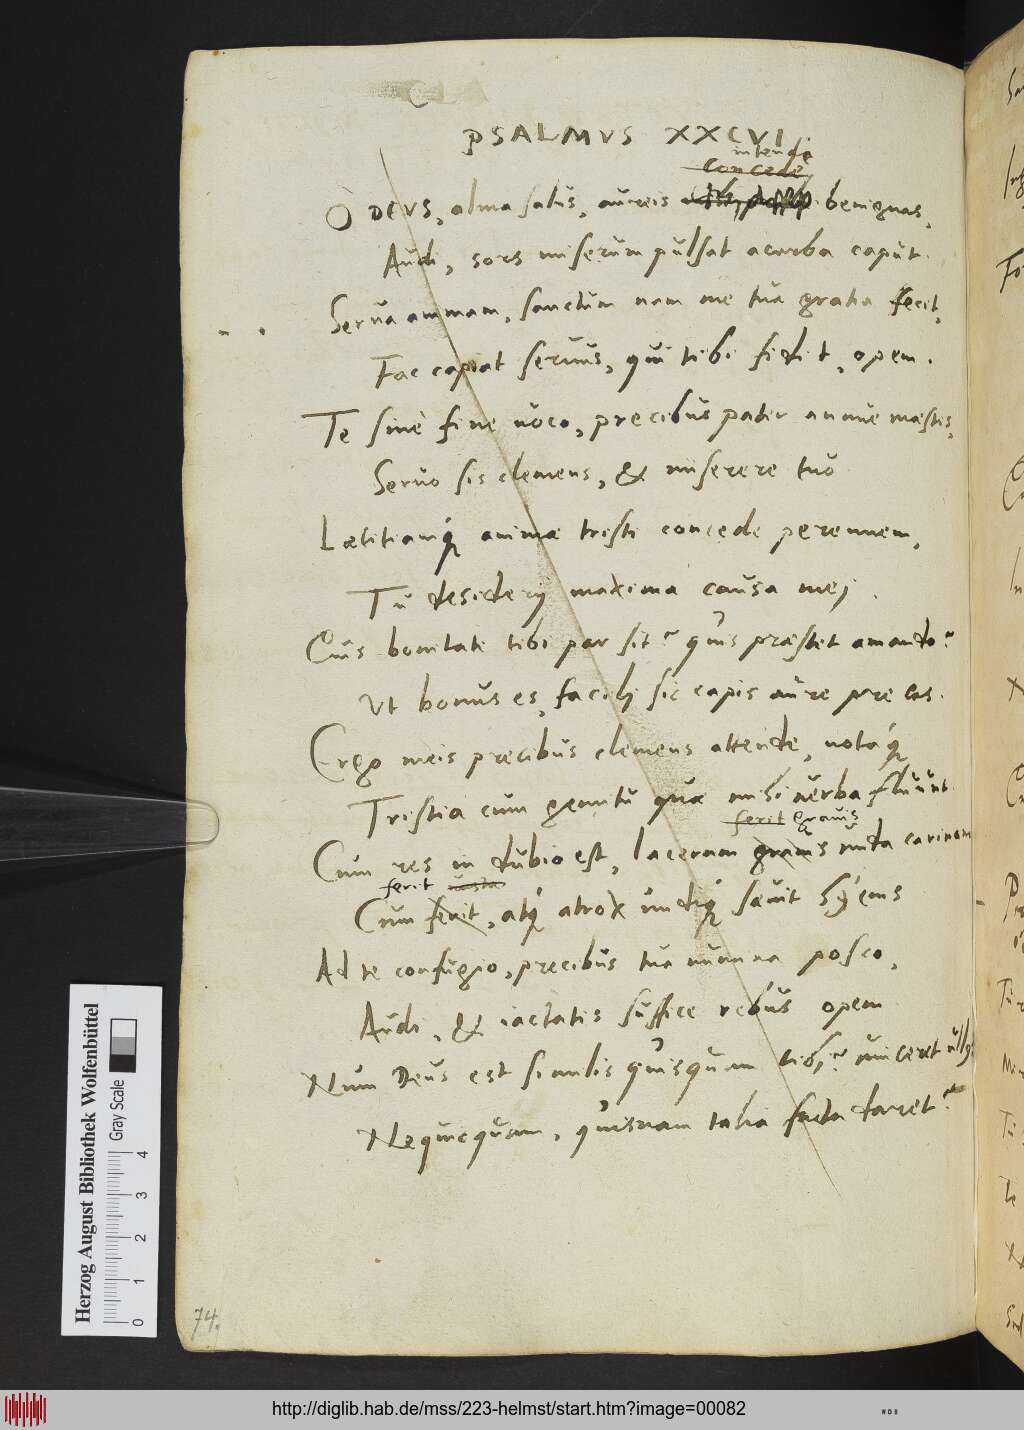 PSALMVS XXCVI
intende
concede
O DEVS, alma salus, aureis benignas,
Audi, sors miserum pulsat acerba caput.
Serva animam, sanctum nam me tua gratia fecit,
Fac capiat servus, qui tibi fidit, opem.
Te sine fine voco, precibus pater annue mæstis,
Servo sis clemens, & miserere tuo
Lætitiamq́ue animæ tristi concede perennem,
Tu desiderij maxima causa mej.
Cuis bonitate tibi par sit? quis præstet amando?
Vt bonus es, facilj sic capis aure preces.
Ergo meis precibus clemens attende, notaq́ue
Tristia cum gemitu quæ mihi verba fluunt.
ferit gravis
Cum res in dubio est, laceram gravis unda carinam
ferit vasta
Cum ferit, atq́ue atrox undiq́ue sævit hyems
Ad te confugio, precibus tua numina posco,
Audi, & iactatis suffice rebus opem
Num Deus est similis quisquam tibi? vinceret ullus
Nequicquam, quisnam talia facta daret?
74.
Herzog August Bibliothek Wolfenbüttel
Gray Scale
0 1 2 3 4
http://diglib.hab.de/mss/223-helmst/start.htm?image=00082